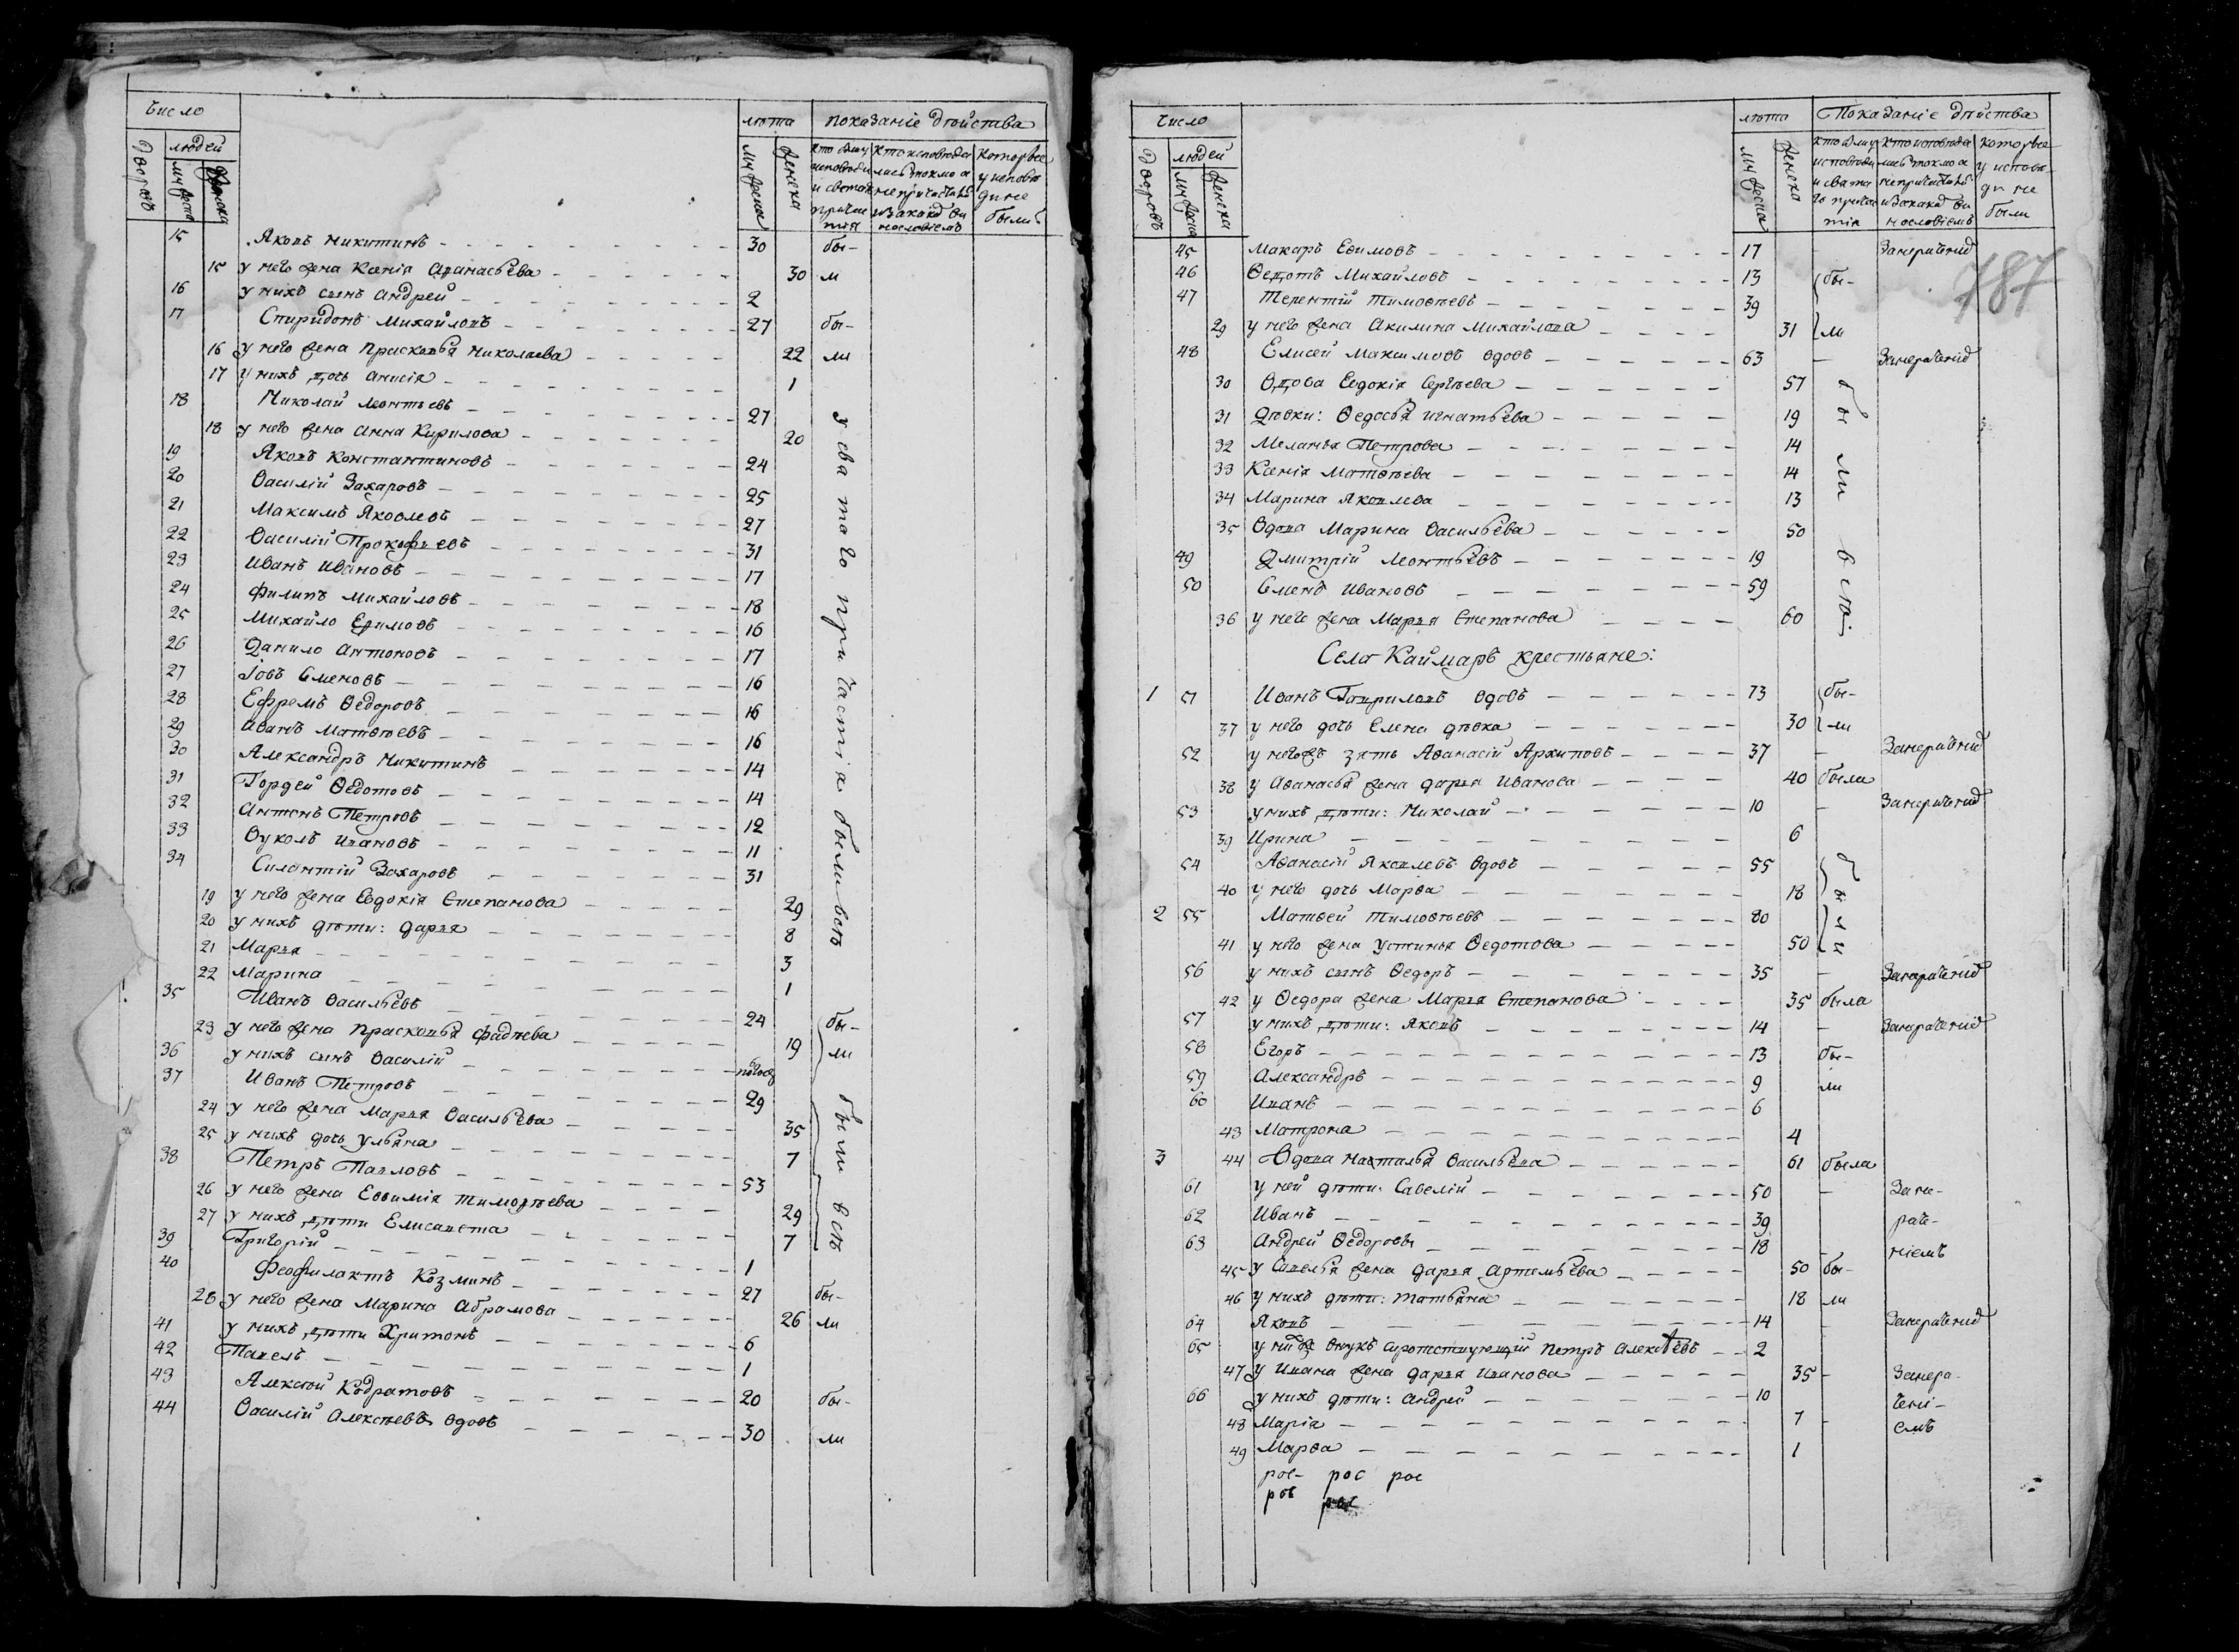 Число
лѣта
показаніе дѣйства
дворовъ
людей
мужеска
женска
мужеска
женска
кто были
исповеди
и святаго
причас
тія
кто исповѣда
лись токмо а
не причастил
и за какд ви
нословіемъ
которые
у испове
ди не
были
15 Яковъ Никитинъ 30 бы-
15 у него жена Ксенія Афанасьева 30 ли
16 у нихъ сынъ Андрей 2
17 Спиридонъ Михайловъ 27 бы-
16 у него жена Прасковья Николаева 22 ли
17 у нихъ дочь Анисія 1
18 Николай Леонтьевъ 27
18 у него жена Анна Кирилова 20
19 Яковъ Константиновъ 24
20 Василій Захаровъ 25
21 Максимъ Яковлевъ 27
22 Василій Прокофьевъ 31
23 Иванъ Ивановъ 17
24 Филипъ Михайловъ 18
25 Михайло Ефимовъ 16
26 Данило Антоновъ 17
27 Іовъ Сменовъ 16
28 Ефремъ Ѳедоровъ 16
29 Иванъ Матвѣевъ 16
30 Александръ Никитинъ 14
31 Гордей Ѳедотовъ 14
32 Антонъ Петровъ 12
33 Вуколъ Ивановъ 11
34 Силантій Захаровъ 31
19 у него жена Евдокія Степанова 29
20 у нихъ дѣти: Дарья 8
21 Марья 3
22 Марина 1
у сватаго причастія были всѣ
35 Иванъ Васильевъ 24 бы-
23 у него жена Прасковья Фадѣева 19 ли
36 у нихъ сынъ Василій полгода
37 Иванъ Петровъ 29
24 у него жена Марья Васильева 35
25 у нихъ дочь Ульяна 7
38 Петръ Павловъ 53
26 у него жена Евѳимія Тимофѣева 29
27 у нихъ дѣти Елисавета 7
были всѣ
39 Григорій 1
40 Феофилактъ Козминъ 27 бы-
28 у него жена Марина Абрамова 26 ли
41 у нихъ дѣти Хритонъ 6
42 Павелъ 1
43 Алексѣй Кодратовъ 20 бы-
44 Василій Алексѣевъ вдовъ 30 ли
Число
лѣта
Показаніе дѣйства
дворовъ
людей
мужеска
женска
мужеска
женска
кто были
исповеди
и свята
го причас
тія
кто исповѣда
лись токмо а
не причастил
и за какд ви
нословіемъ
которые
у испове
ди не
были
787
45 Макаръ Евимовъ 17 - Занераченид
46 Ѳедотъ Михайловъ 13 бы-
47 Терентій Тимоѳѣевъ 39
29 у него жена Акилина Михайлова 31 ли
48 Елисей Максимовъ вдовъ 63 - Занераченид
30 Вдова Евдокія Сергѣева 57
31 Дѣвки: Ѳедосья Игнатьева 19
32 Меланья Петрова 14
33 Ксенія Матвѣева 14
34 Марина Яковлева 13
35 Вдова Марина Васильева 50
49 Дмитрій Леонтьевъ 19
50 Сменъ Ивановъ 59
36 у него жена Марья Степанова 60
были всѣ
Села Каймаръ крестьяне:
1 51 Иванъ Гавриловъ вдовъ 73 бы-
37 у него дочь Елена дѣвка 30 ли
52 у негожъ зять Аѳанасій Архиповъ 37 - Занераченид
38 у Аѳанасья жена Дарья Иванова 40 была
53 у нихъ дѣти: Николай 10 - Занераченид
39 Ирина 6
54 Аѳанасій Яковлевъ вдовъ 55
40 у него дочь Марѳа 18
2 55 Матвей Тимоѳѣевъ 80
41 у него жена Устинья Ѳедотова 50
были
56 у нихъ сынъ Ѳедоръ 35 - Занераченид
42 у Ѳедора жена Марья Степанова 35 была
57 у нихъ дѣти: Яковъ 14 - Занераченид
58 Егоръ 13 бы-
59 Александръ 9 ли
60 Иванъ 6
43 Матрона 4
3 44 Вдова Наталья Васильева 61 была
61 у ней дѣти: Савелій 50 - Зане-
62 Иванъ 39 раче-
63 Андрей Ѳедоровы 18 - ніемъ
45 у Савелья жена Дарья Артемьева 50 бы-
46 у нихъ дѣти: Татьяна 18 ли
64 Яковъ 14 - Занераченид
65 у ней жъ внукъ сиротствующій Петръ Алексѣевъ 2
47 у Ивана жена Дарья Иванова 35 - Занера-
66 у нихъ дѣти: Андрей 10 чені-
48 Марія 7 - емъ
49 Марѳа 1
рос- рос рос
рос рос